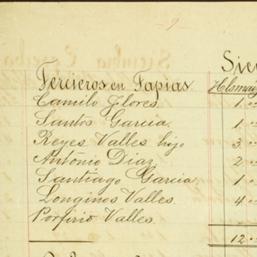 9
Sie
Tercieros en Tapias
Camilo Flores 1
Santos Garcia 1
Reyes Valles hijo 3
Antonio Diaz 2
Santiago Garcia 1
Longinos Valles 4
Porfirio Valles
12